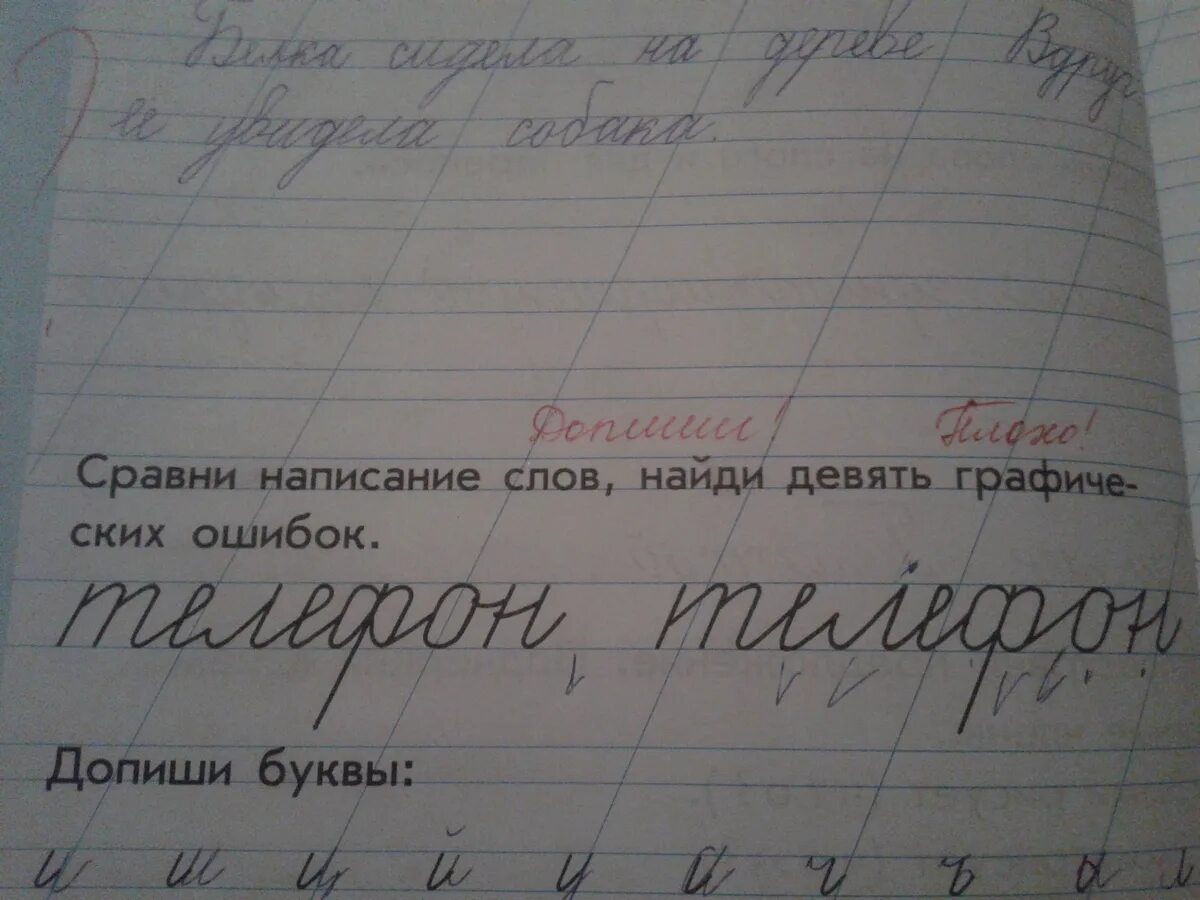 Белка сидела на дереве Вдруг
ее увидела собака.
Допиши! Плохо!
Сравни написание слов, найди девять графиче-
ских ошибок.
телефон телефон
Допиши буквы:
и ш ц й у а ч ъ а л